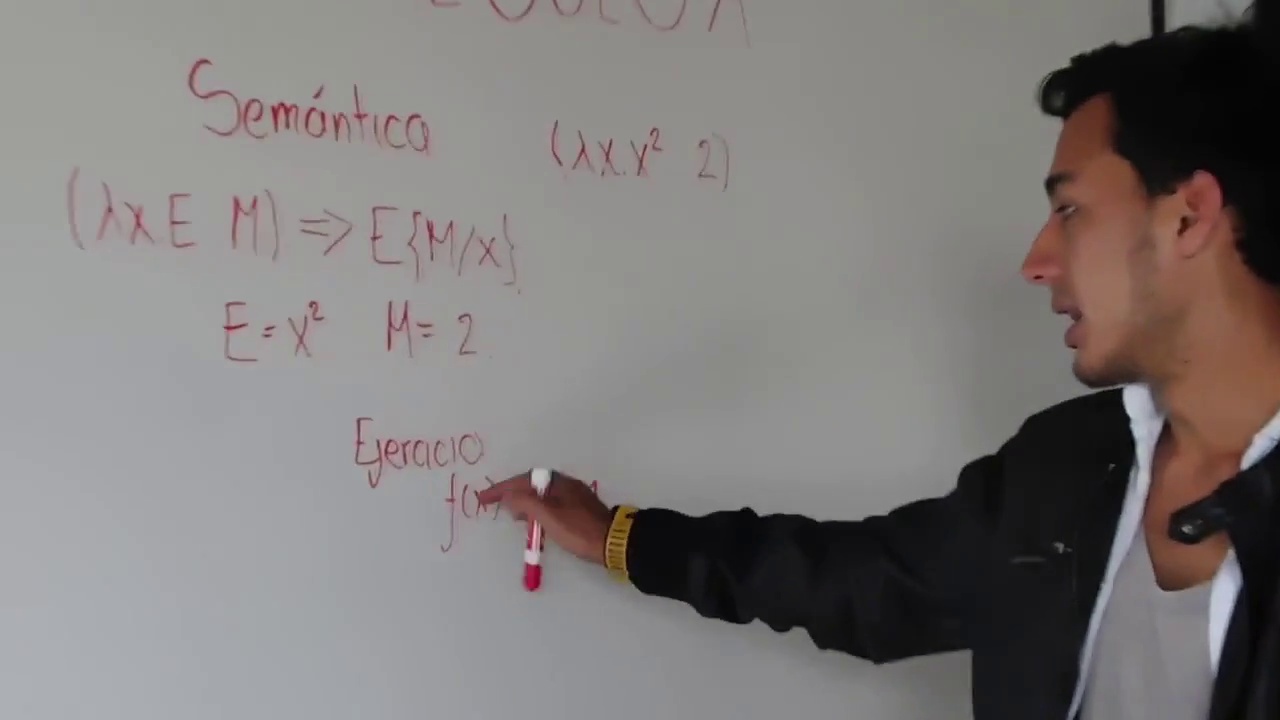 Semántica
(λx.x² 2)
(λx E M) => E{M/x}
E = x² M = 2
Ejercicio
f(x)